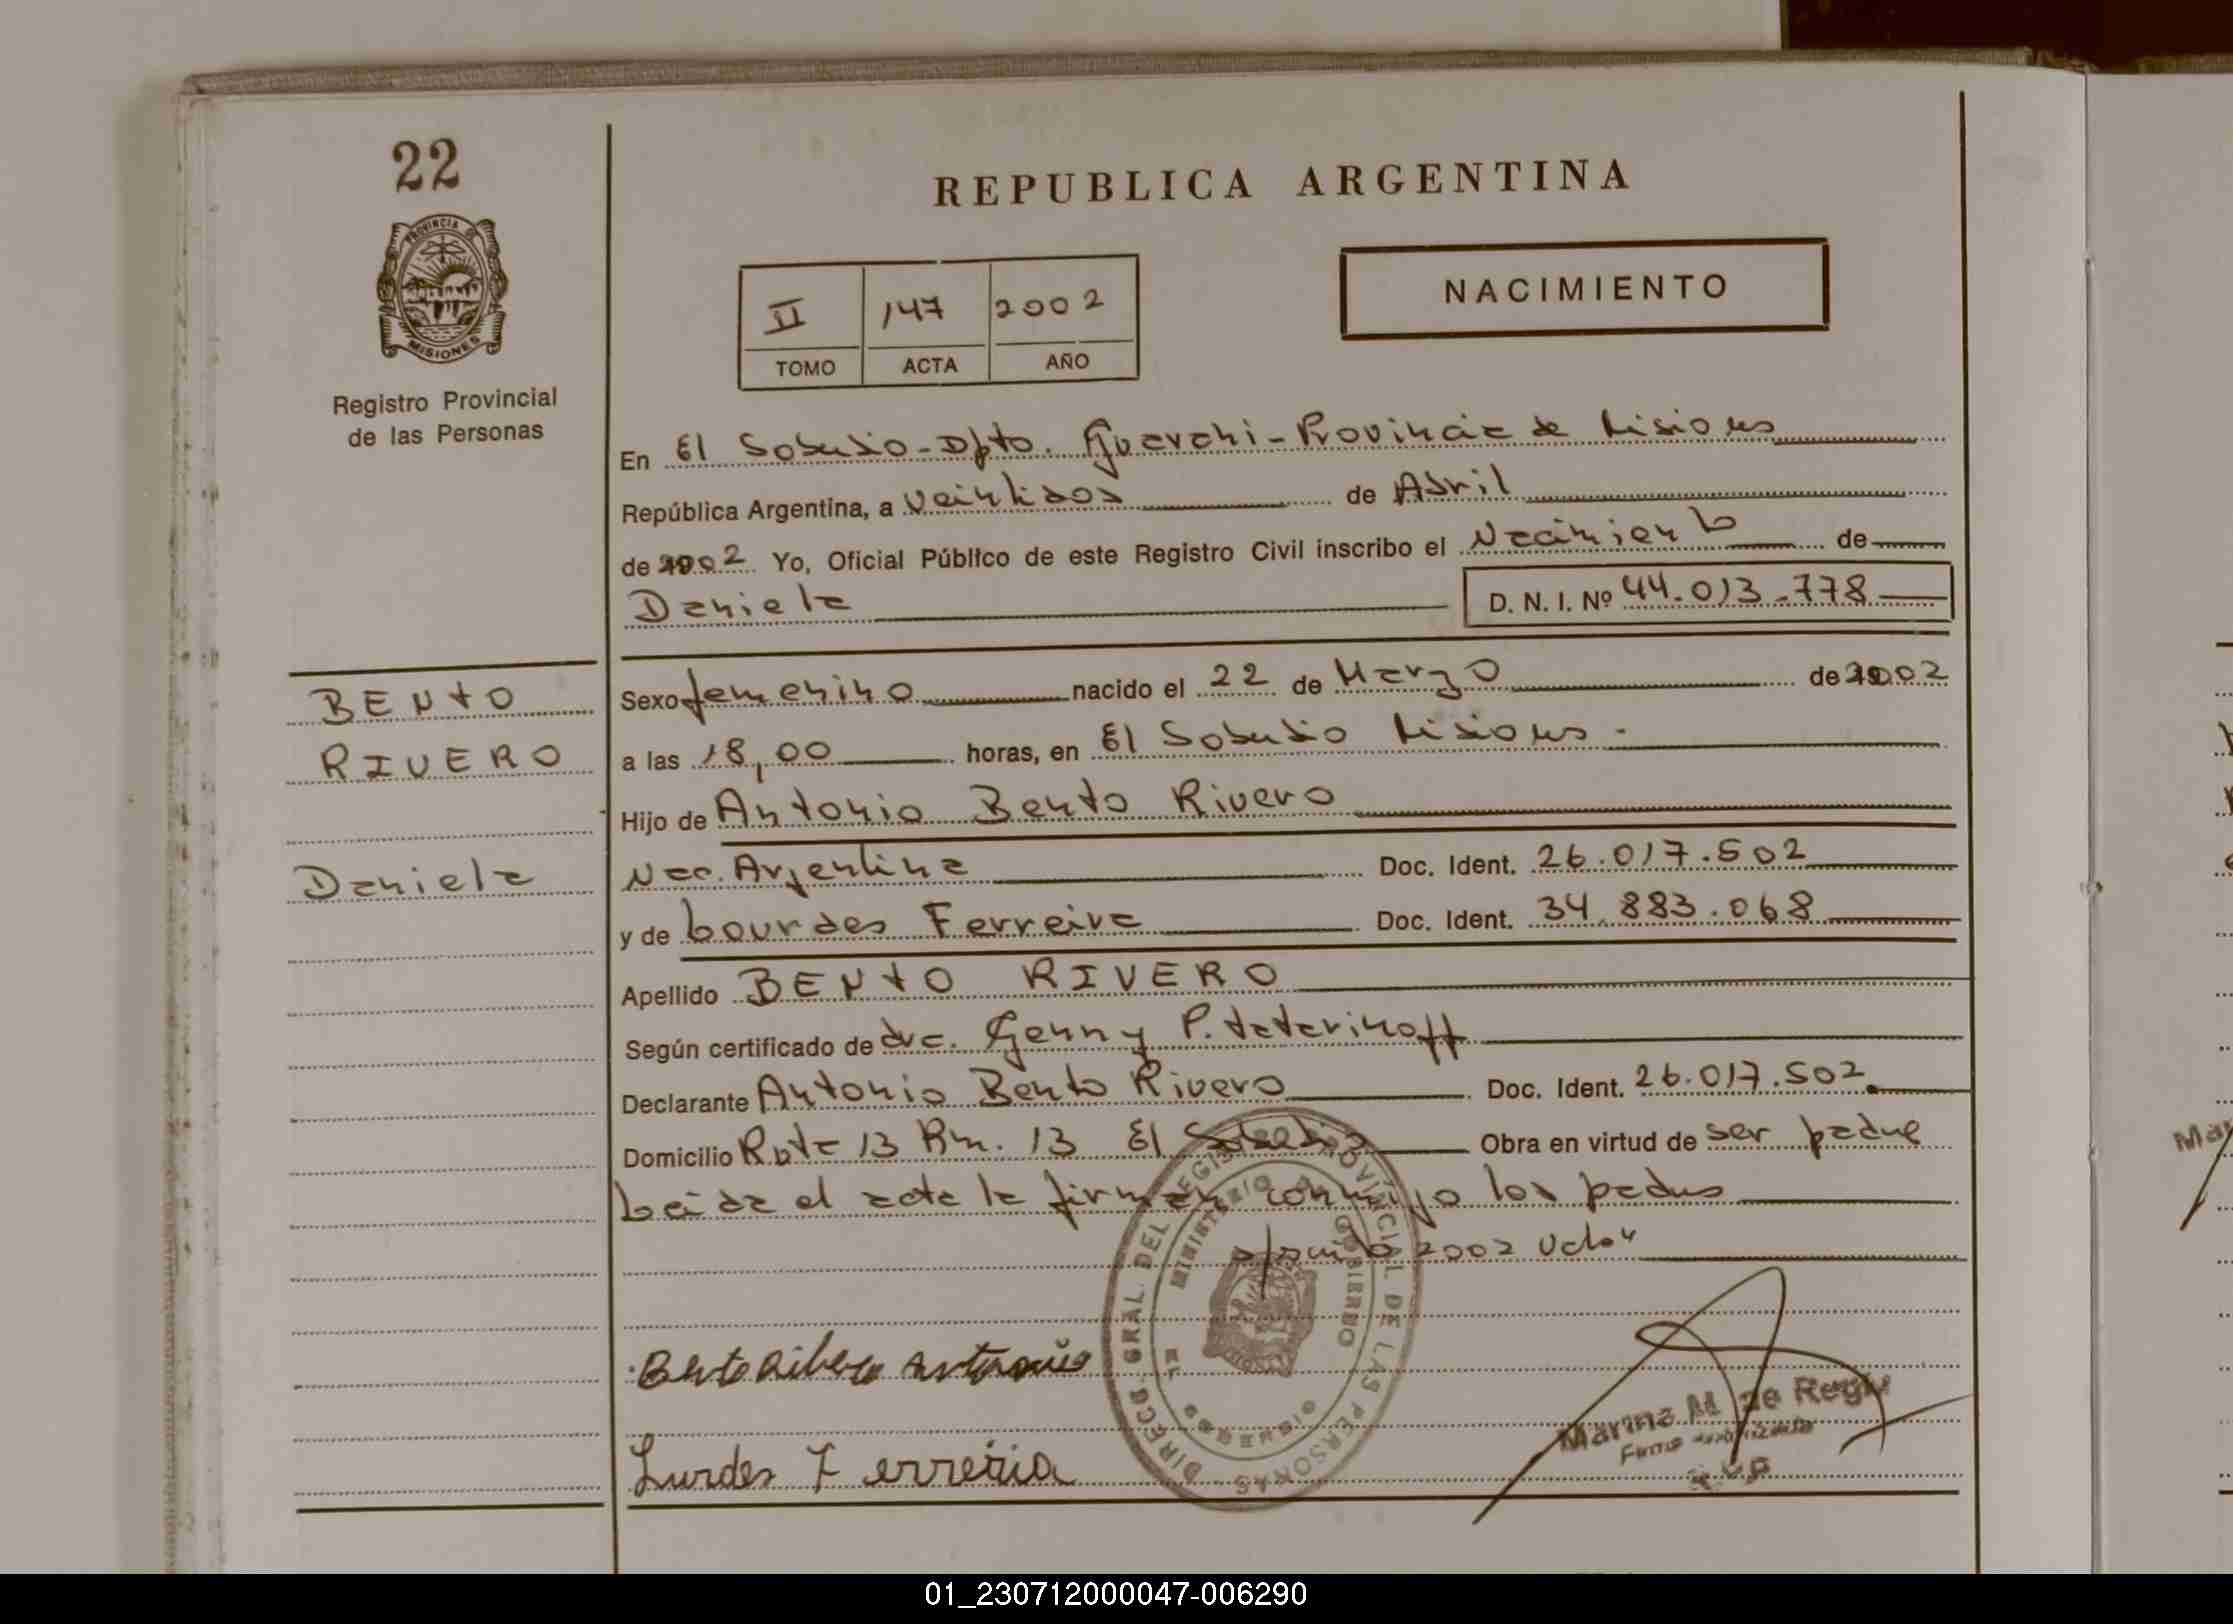 22
PROVINCIA DE
MISIONES
Registro Provincial
de las Personas
REPUBLICA ARGENTINA
II 147 2002
TOMO ACTA AÑO
NACIMIENTO
En El Soberbio - Dpto. Guarani - Provincia de Misiones
República Argentina, a veintidos de Abril
de 2002 Yo, Oficial Público de este Registro Civil inscribo el Nacimiento de
Daniela D. N. I. Nº 44.013.778
BENTO
RIVERO
Daniela
Sexo femenino nacido el 22 de Marzo de 2002
a las 18,00 horas, en El Soberbio Misiones.
Hijo de Antonio Bento Rivero
Nac. Argentina Doc. Ident. 26.017.502
y de Lourdes Ferreira Doc. Ident. 34.883.068
Apellido BENTO RIVERO
Según certificado de dra. Genny P. Teterinoff
Declarante Antonio Bento Rivero Doc. Ident. 26.017.502
Domicilio Ruta 13 Km. 13 El Soberbio Obra en virtud de ser padre
Leida el acta la firman conmigo los padres
2002 Valen
DIRECC. GRAL. DEL REGISTRO PROVINCIAL DE LAS PERSONAS
MINISTERIO DE GOBIERNO
EL SOBERBIO
MISIONES
Bento Ribero Antonio
Lurdes Ferreria
Marina M. de Regly
Firma autorizada
01_230712000047-006290